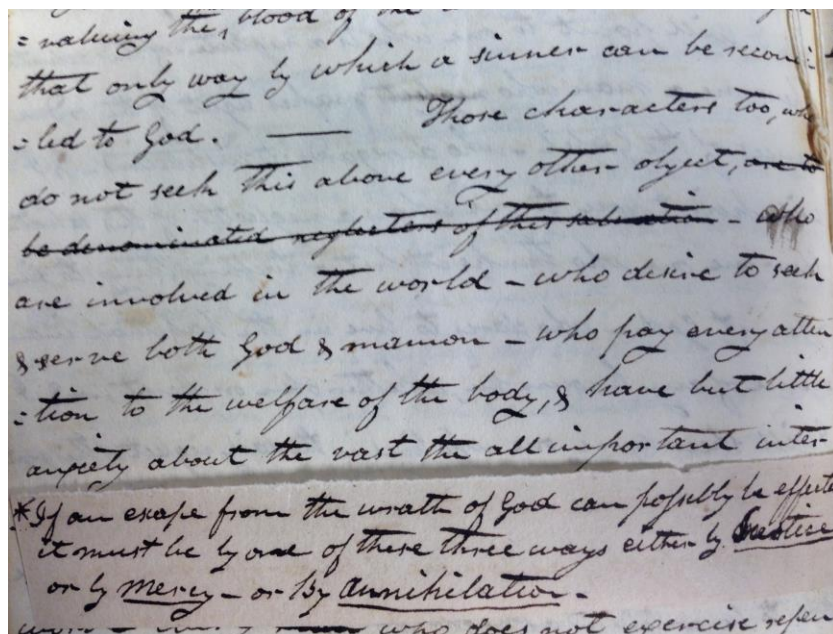 =valuing the blood of the
that only way by which a sinner can be reconci-
=led to God. — Those characters too, who
do not seek this above every other object, are to
be denominated neglecters of this salvation - who
are involved in the world - who desire to seek
& serve both God & mamon - who pay every atten
=tion to the welfare of the body, & have but little
anxiety about the vast the all important inter-
*If an escape from the wrath of God can possibly be effecte
it must be by one of these three ways either by Justice
or by Mercy - or By Annihilation -
who does not exercise repen